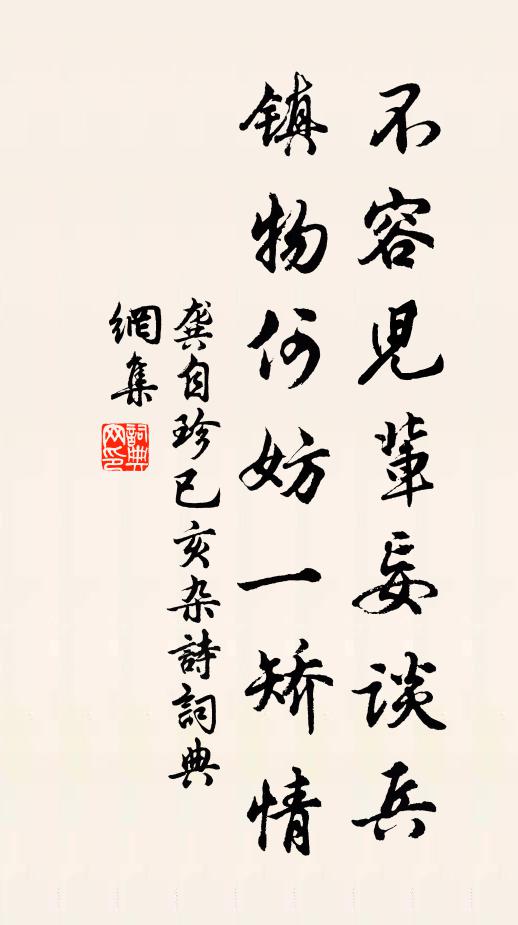 不容児輩妄談兵
鎮物何妨一矯情
龔自珍己亥杂詩詞典
網集
詞典
网印